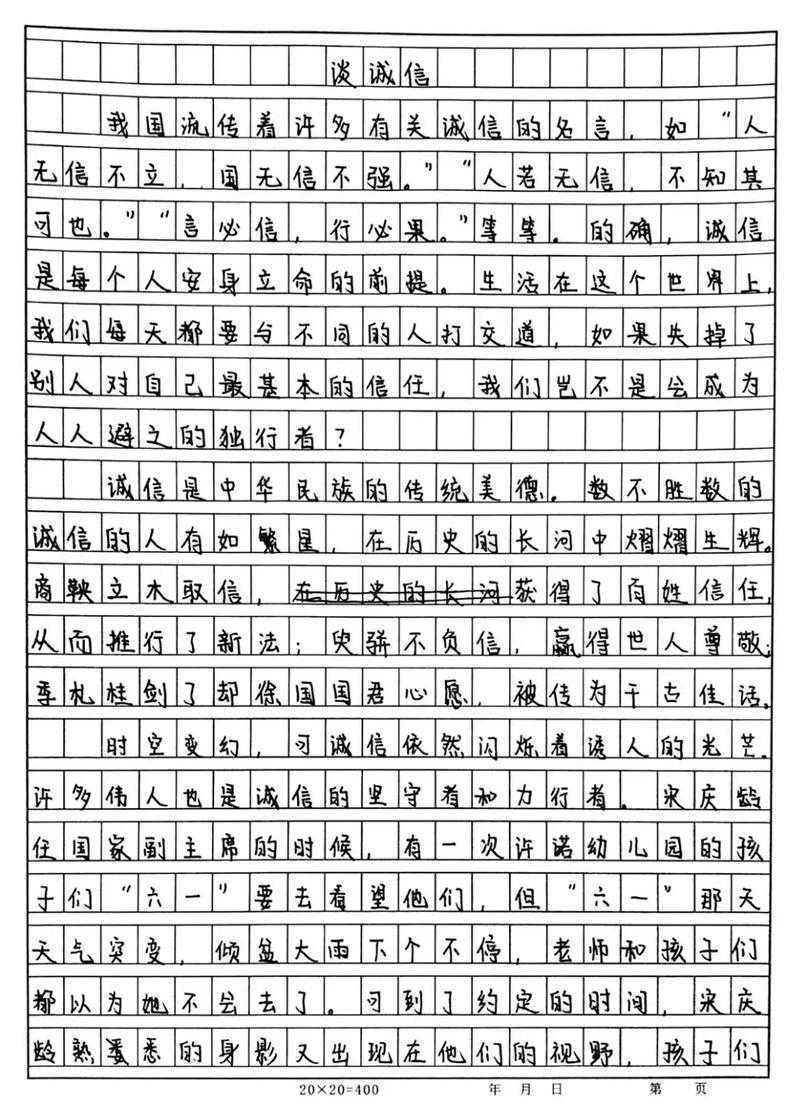 谈诚信
我国流传着许多有关诚信的名言，如“人
无信不立，国无信不强。”“人若无信，不知其
可也。”“言必信，行必果。”等等。的确，诚信
是每个人安身立命的前提。生活在这个世界上，
我们每天都要与不同的人打交道，如果失掉了
别人对自己最基本的信任，我们岂不是会成为
人人避之的独行者？
诚信是中华民族的传统美德。数不胜数的
诚信的人有如繁星，在历史的长河中熠熠生辉。
商鞅立木取信，在历史的长河获得了百姓信任，
从而推行了新法；史骈不负信，赢得世人尊敬；
季札挂剑了却徐国国君心愿，被传为千古佳话。
时空变幻，可诚信依然闪烁着诱人的光芒。
许多伟人也是诚信的坚守者和力行者。宋庆龄
任国家副主席的时候，有一次许诺幼儿园的孩
子们“六一”要去看望他们，但“六一”那天
天气突变，倾盆大雨下个不停，老师和孩子们
都以为她不会去了。可到了约定的时间，宋庆
龄熟悉的身影又出现在他们的视野，孩子们
20×20=400 年 月 日 第 页